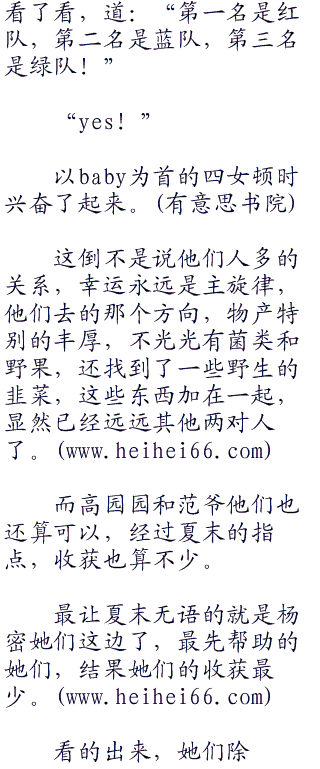 看了看，道：“第一名是红
队，第二名是蓝队，第三名
是绿队！”
“yes！”
以baby为首的四女顿时
兴奋了起来。(有意思书院)
这倒不是说他们人多的
关系，幸运永远是主旋律，
他们去的那个方向，物产特
别的丰厚，不光光有菌类和
野果，还找到了一些野生的
韭菜，这些东西加在一起，
显然已经远远其他两对人
了。(www.heihei66.com)
而高园园和范爷他们也
还算可以，经过夏末的指
点，收获也算不少。
最让夏末无语的就是杨
密她们这边了，最先帮助的
她们，结果她们的收获最
少。(www.heihei66.com)
看的出来，她们除